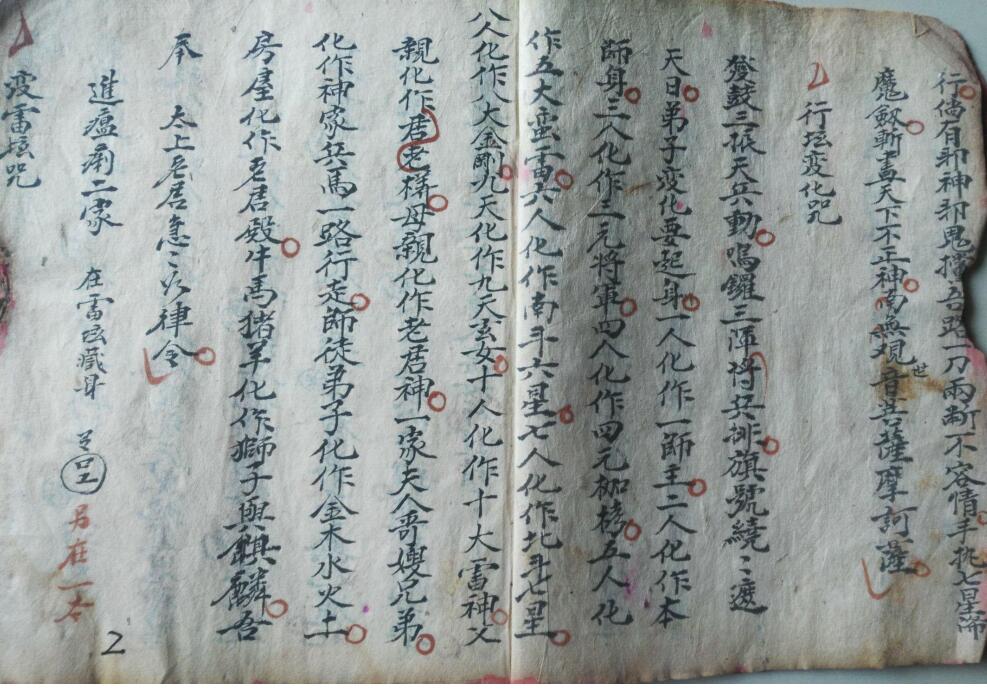 行倘有邪神邪鬼擋吾路一刀兩斷不容情手執七星
魔斬盡天下不正神南無觀世音菩薩摩訶薩
行坛变化咒
發鼓三孤天兵動鳴鑼三陣將兵排旗號繞〻遮
天日弟子变化要起身一人化作一師主二人化作本
師身三人化作三元將軍四人化作四元枷栲五人化
作五大蛮雷六人化作南斗六星七人化作北斗七星
八人化作八大金剛九天化作九天玄女十人化作十大雷神父
親化作居老樣母親化作老居神一家夫人哥嫂兄弟
化作神家兵馬一路行走師徒弟子化作金木水火土
房屋化作老君殿牛馬猪羊化作獅子與麒麟吾
奉 太上老君急〻如律令
進瘟痢二家 在雷坛藏身
另在一本
雷坛咒
2